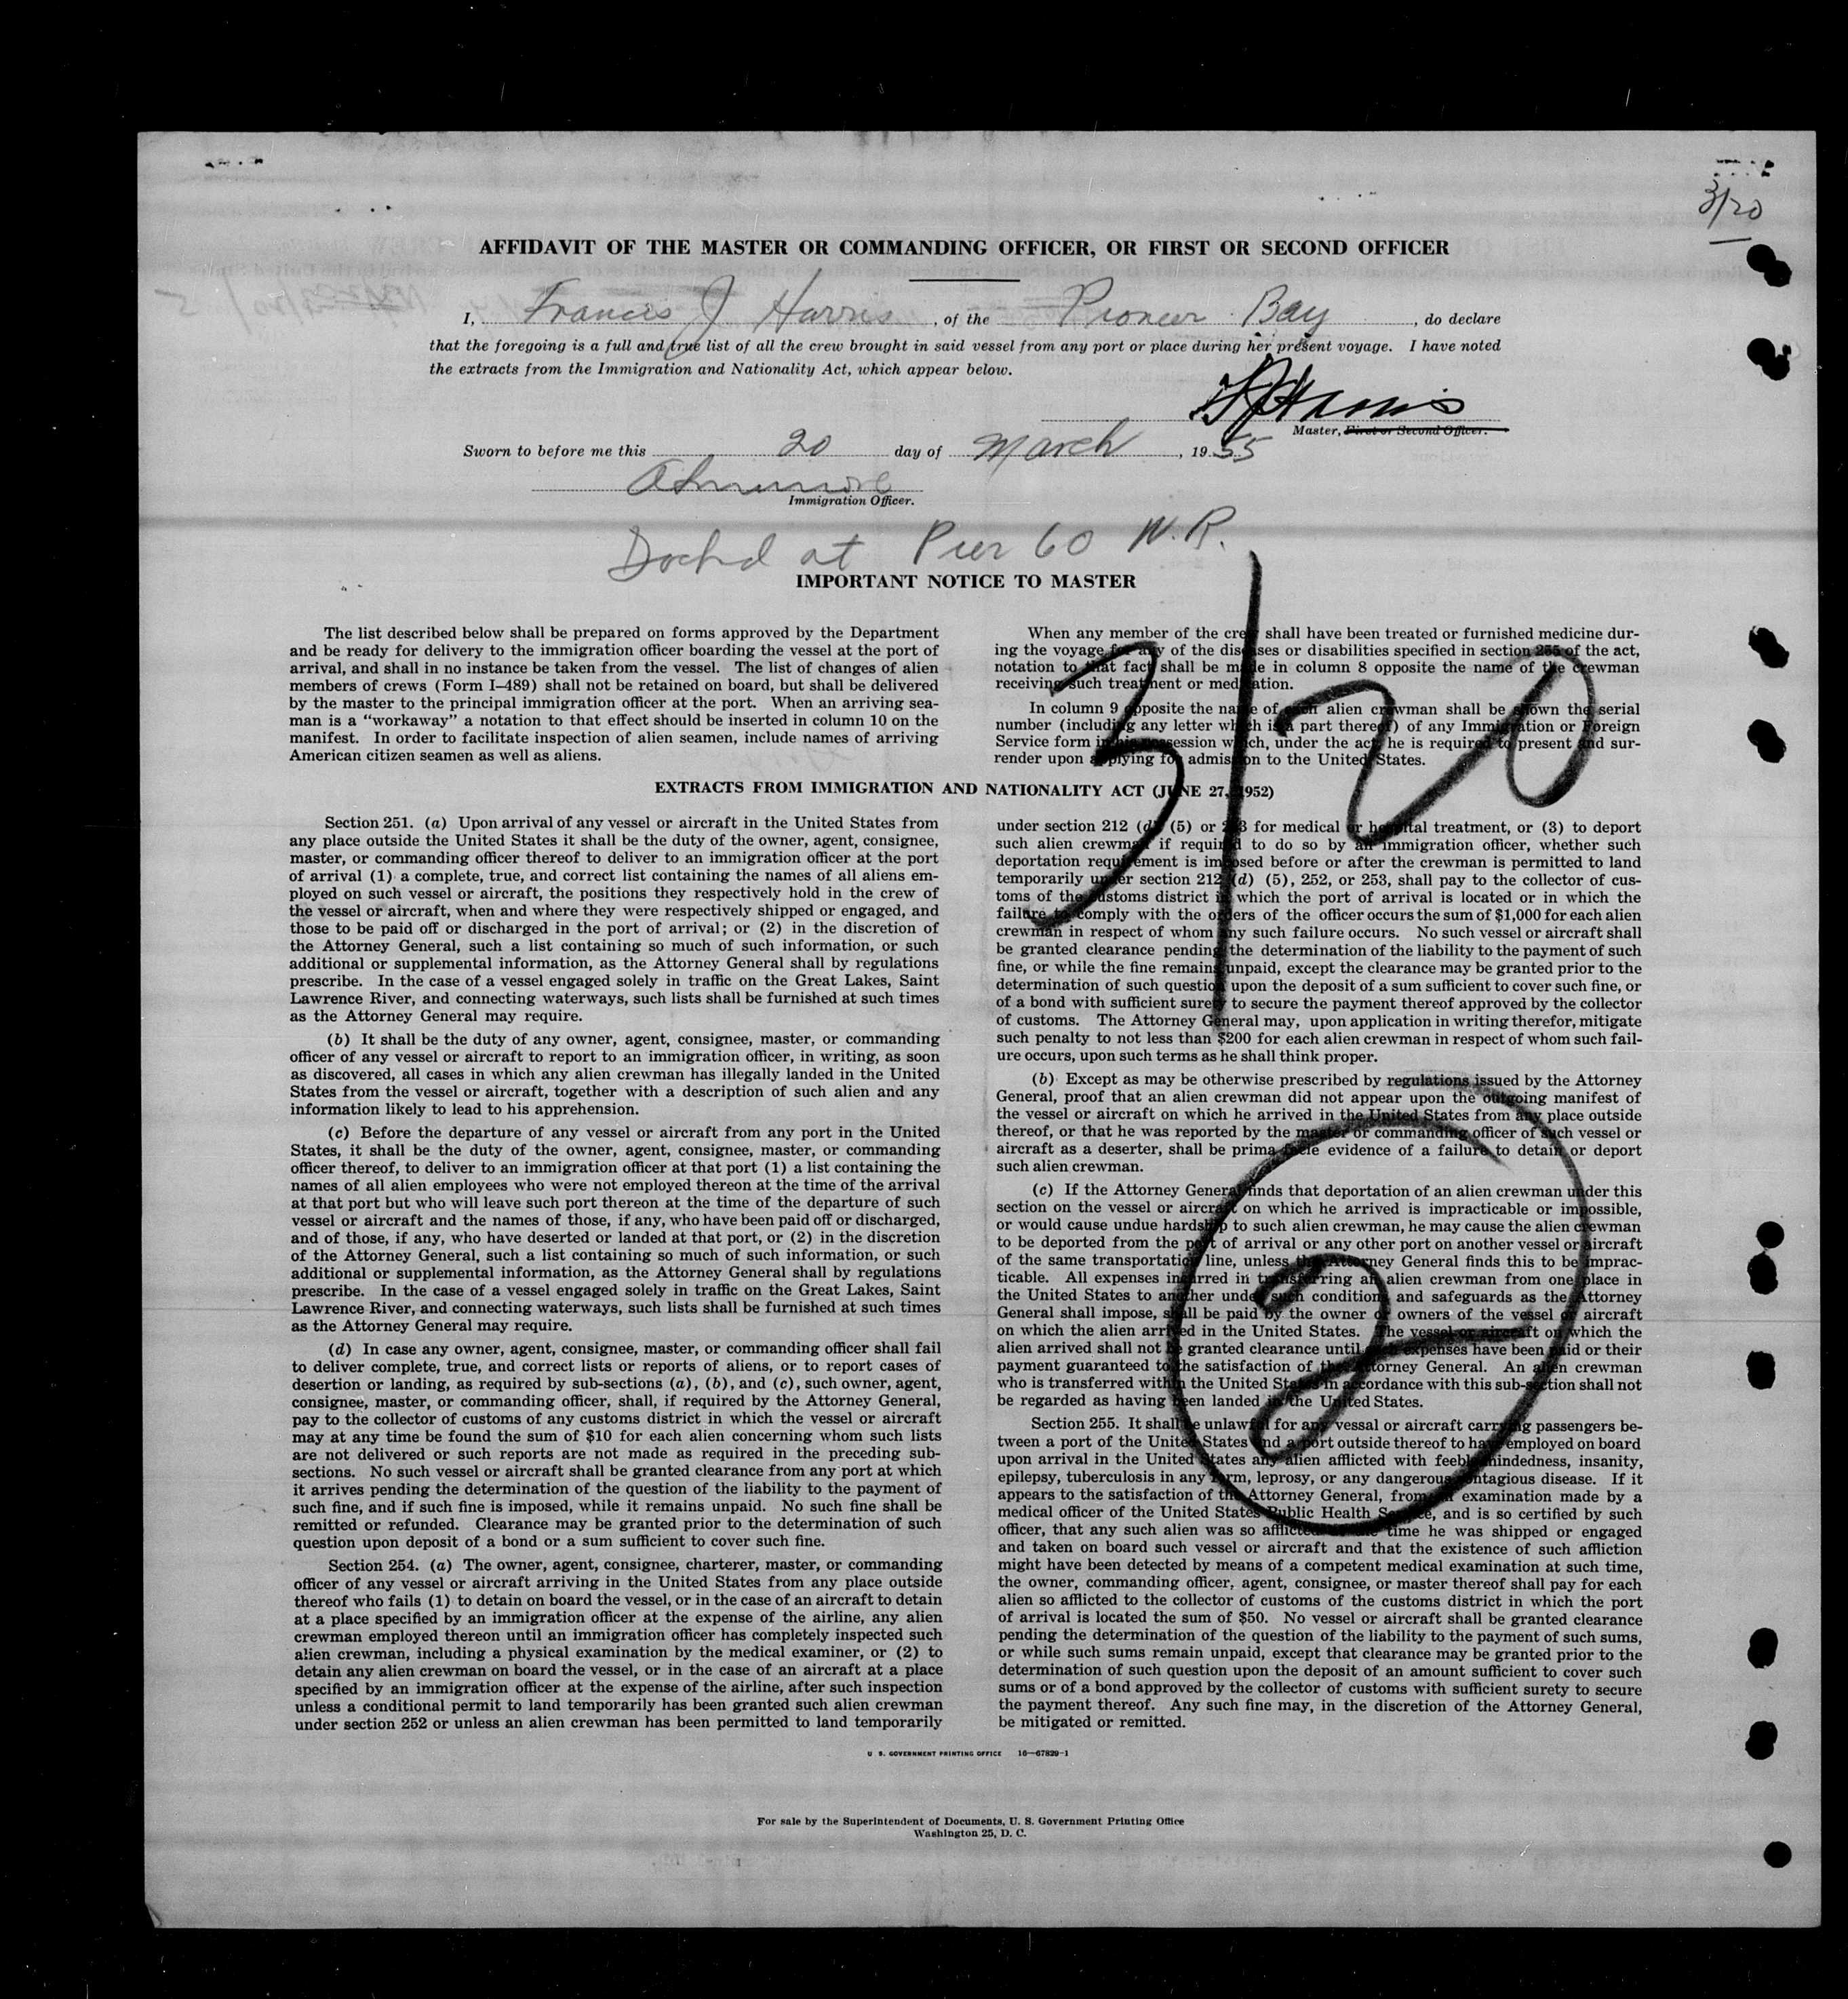 3/20
AFFIDAVIT OF THE MASTER OR COMMANDING OFFICER, OR FIRST OR SECOND OFFICER
I, Francis J Harris, of the Pioneer Bay, do declare
that the foregoing is a full and true list of all the crew brought in said vessel from any port or place during her present voyage. I have noted
the extracts from the Immigration and Nationality Act, which appear below.
FJHarris
Master, First or Second Officer.
Sworn to before me this 20 day of March, 1955
Immigration Officer.
Docked at Pier 60 N.R.
IMPORTANT NOTICE TO MASTER
The list described below shall be prepared on forms approved by the Department
and be ready for delivery to the immigration officer boarding the vessel at the port of
arrival, and shall in no instance be taken from the vessel. The list of changes of alien
members of crews (Form I–489) shall not be retained on board, but shall be delivered
by the master to the principal immigration officer at the port. When an arriving sea-
man is a “workaway” a notation to that effect should be inserted in column 10 on the
manifest. In order to facilitate inspection of alien seamen, include names of arriving
American citizen seamen as well as aliens.
When any member of the crew shall have been treated or furnished medicine dur-
ing the voyage for any of the diseases or disabilities specified in section 255 of the act,
notation to that fact shall be made in column 8 opposite the name of the crewman
receiving such treatment or medication.
In column 9 opposite the name of each alien crewman shall be shown the serial
number (including any letter which is a part thereof) of any Immigration or Foreign
Service form in his possession which, under the act, he is required to present and sur-
render upon applying for admission to the United States.
3/20
EXTRACTS FROM IMMIGRATION AND NATIONALITY ACT (JUNE 27, 1952)
Section 251. (a) Upon arrival of any vessel or aircraft in the United States from
any place outside the United States it shall be the duty of the owner, agent, consignee,
master, or commanding officer thereof to deliver to an immigration officer at the port
of arrival (1) a complete, true, and correct list containing the names of all aliens em-
ployed on such vessel or aircraft, the positions they respectively hold in the crew of
the vessel or aircraft, when and where they were respectively shipped or engaged, and
those to be paid off or discharged in the port of arrival; or (2) in the discretion of
the Attorney General, such a list containing so much of such information, or such
additional or supplemental information, as the Attorney General shall by regulations
prescribe. In the case of a vessel engaged solely in traffic on the Great Lakes, Saint
Lawrence River, and connecting waterways, such lists shall be furnished at such times
as the Attorney General may require.
(b) It shall be the duty of any owner, agent, consignee, master, or commanding
officer of any vessel or aircraft to report to an immigration officer, in writing, as soon
as discovered, all cases in which any alien crewman has illegally landed in the United
States from the vessel or aircraft, together with a description of such alien and any
information likely to lead to his apprehension.
(c) Before the departure of any vessel or aircraft from any port in the United
States, it shall be the duty of the owner, agent, consignee, master, or commanding
officer thereof, to deliver to an immigration officer at that port (1) a list containing the
names of all alien employees who were not employed thereon at the time of the arrival
at that port but who will leave such port thereon at the time of the departure of such
vessel or aircraft and the names of those, if any, who have been paid off or discharged,
and of those, if any, who have deserted or landed at that port, or (2) in the discretion
of the Attorney General, such a list containing so much of such information, or such
additional or supplemental information, as the Attorney General shall by regulations
prescribe. In the case of a vessel engaged solely in traffic on the Great Lakes, Saint
Lawrence River, and connecting waterways, such lists shall be furnished at such times
as the Attorney General may require.
(d) In case any owner, agent, consignee, master, or commanding officer shall fail
to deliver complete, true, and correct lists or reports of aliens, or to report cases of
desertion or landing, as required by sub-sections (a), (b), and (c), such owner, agent,
consignee, master, or commanding officer, shall, if required by the Attorney General,
pay to the collector of customs of any customs district in which the vessel or aircraft
may at any time be found the sum of $10 for each alien concerning whom such lists
are not delivered or such reports are not made as required in the preceding sub-
sections. No such vessel or aircraft shall be granted clearance from any port at which
it arrives pending the determination of the question of the liability to the payment of
such fine, and if such fine is imposed, while it remains unpaid. No such fine shall be
remitted or refunded. Clearance may be granted prior to the determination of such
question upon deposit of a bond or a sum sufficient to cover such fine.
Section 254. (a) The owner, agent, consignee, charterer, master, or commanding
officer of any vessel or aircraft arriving in the United States from any place outside
thereof who fails (1) to detain on board the vessel, or in the case of an aircraft to detain
at a place specified by an immigration officer at the expense of the airline, any alien
crewman employed thereon until an immigration officer has completely inspected such
alien crewman, including a physical examination by the medical examiner, or (2) to
detain any alien crewman on board the vessel, or in the case of an aircraft at a place
specified by an immigration officer at the expense of the airline, after such inspection
unless a conditional permit to land temporarily has been granted such alien crewman
under section 252 or unless an alien crewman has been permitted to land temporarily
under section 212 (d) (5) or 253 for medical or hospital treatment, or (3) to deport
such alien crewman if required to do so by an immigration officer, whether such
deportation requirement is imposed before or after the crewman is permitted to land
temporarily under section 212 (d) (5), 252, or 253, shall pay to the collector of cus-
toms of the customs district in which the port of arrival is located or in which the
failure to comply with the orders of the officer occurs the sum of $1,000 for each alien
crewman in respect of whom any such failure occurs. No such vessel or aircraft shall
be granted clearance pending the determination of the liability to the payment of such
fine, or while the fine remains unpaid, except the clearance may be granted prior to the
determination of such question upon the deposit of a sum sufficient to cover such fine, or
of a bond with sufficient surety to secure the payment thereof approved by the collector
of customs. The Attorney General may, upon application in writing therefor, mitigate
such penalty to not less than $200 for each alien crewman in respect of whom such fail-
ure occurs, upon such terms as he shall think proper.
(b) Except as may be otherwise prescribed by regulations issued by the Attorney
General, proof that an alien crewman did not appear upon the outgoing manifest of
the vessel or aircraft on which he arrived in the United States from any place outside
thereof, or that he was reported by the master or commanding officer of such vessel or
aircraft as a deserter, shall be prima facie evidence of a failure to detain or deport
such alien crewman.
(c) If the Attorney General finds that deportation of an alien crewman under this
section on the vessel or aircraft on which he arrived is impracticable or impossible,
or would cause undue hardship to such alien crewman, he may cause the alien crewman
to be deported from the port of arrival or any other port on another vessel or aircraft
of the same transportation line, unless the Attorney General finds this to be imprac-
ticable. All expenses incurred in transferring an alien crewman from one place in
the United States to another under such conditions and safeguards as the Attorney
General shall impose, shall be paid by the owner or owners of the vessel or aircraft
on which the alien arrived in the United States. The vessel or aircraft on which the
alien arrived shall not be granted clearance until such expenses have been paid or their
payment guaranteed to the satisfaction of the Attorney General. An alien crewman
who is transferred within the United States in accordance with this sub-section shall not
be regarded as having been landed in the United States.
2
Section 255. It shall be unlawful for any vessal or aircraft carrying passengers be-
tween a port of the United States and a port outside thereof to have employed on board
upon arrival in the United States any alien afflicted with feeblemindedness, insanity,
epilepsy, tuberculosis in any form, leprosy, or any dangerous contagious disease. If it
appears to the satisfaction of the Attorney General, from an examination made by a
medical officer of the United States Public Health Service, and is so certified by such
officer, that any such alien was so afflicted at the time he was shipped or engaged
and taken on board such vessel or aircraft and that the existence of such affliction
might have been detected by means of a competent medical examination at such time,
the owner, commanding officer, agent, consignee, or master thereof shall pay for each
alien so afflicted to the collector of customs of the customs district in which the port
of arrival is located the sum of $50. No vessel or aircraft shall be granted clearance
pending the determination of the question of the liability to the payment of such sums,
or while such sums remain unpaid, except that clearance may be granted prior to the
determination of such question upon the deposit of an amount sufficient to cover such
sums or of a bond approved by the collector of customs with sufficient surety to secure
the payment thereof. Any such fine may, in the discretion of the Attorney General,
be mitigated or remitted.
U. S. GOVERNMENT PRINTING OFFICE 16—67829-1
For sale by the Superintendent of Documents, U. S. Government Printing Office
Washington 25, D. C.